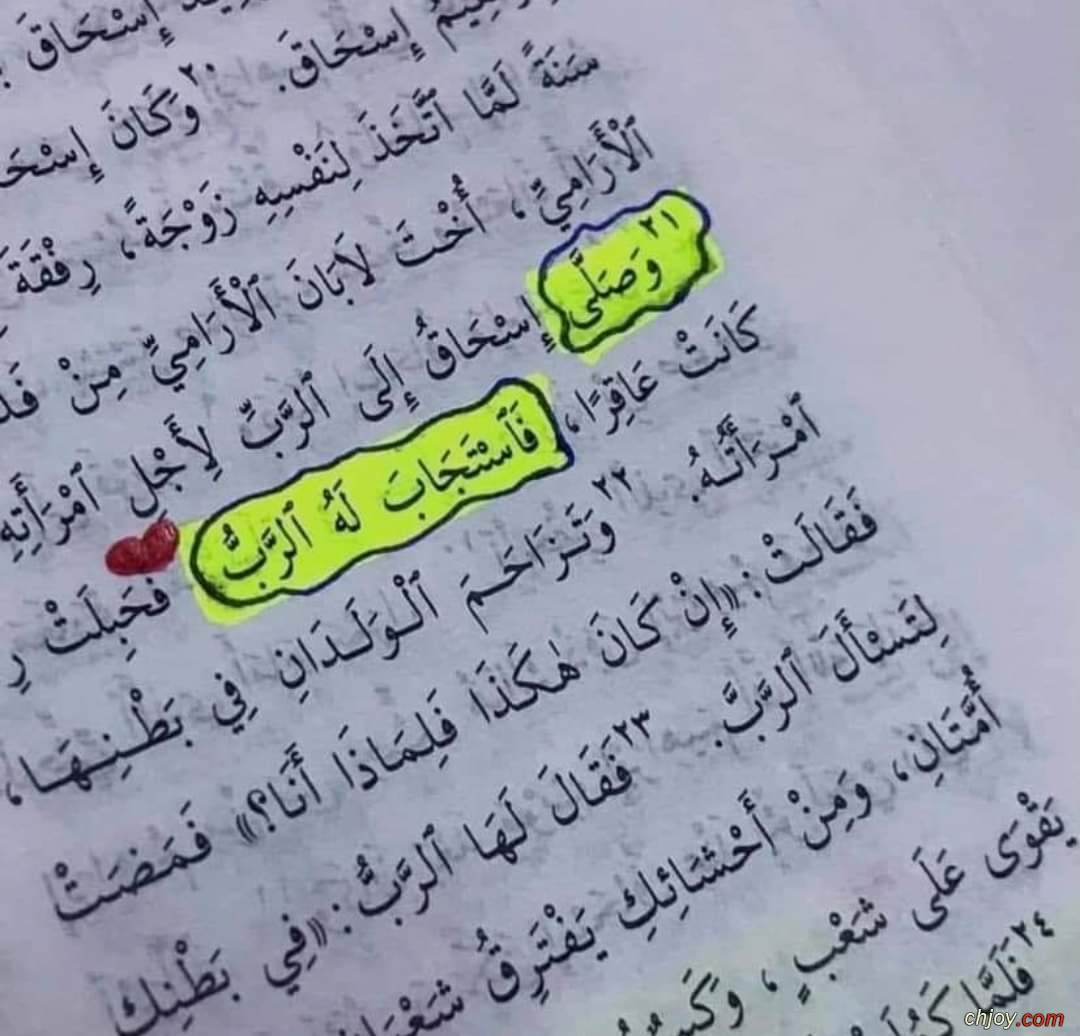 إِسْحَاقَ
إِسْحَاقَ. ٢٠ وَكَانَ
سَنَةً لَمَّا ٱتَّخَذَ لِنَفْسِهِ زَوْجَةً، رِفْقَةَ
ٱلْأَرَامِيِّ، أُخْتَ لَابَانَ ٱلْأَرَامِيِّ مِنْ
٢١ وَصَلَّى إِسْحَاقُ إِلَى ٱلرَّبِّ لِأَجْلِ ٱمْرَأَتِهِ
كَانَتْ عَاقِرًا، فَٱسْتَجَابَ لَهُ ٱلرَّبُّ فَحَبِلَتْ
ٱمْرَأَتُهُ. ٢٢ وَتَزَاحَمَ ٱلْوَلَدَانِ فِي بَطْنِهَا،
فَقَالَتْ: «إِنْ كَانَ هٰكَذَا فَلِمَاذَا أَنَا؟» فَمَضَتْ
لِتَسْأَلَ ٱلرَّبَّ. ٢٣ فَقَالَ لَهَا ٱلرَّبُّ: «فِي بَطْنِكِ
أُمَّتَانِ، وَمِنْ أَحْشَائِكِ يَفْتَرِقُ
يَقْوَى عَلَى شَعْبٍ،
٢٤ فَلَمَّا
chjoy.com